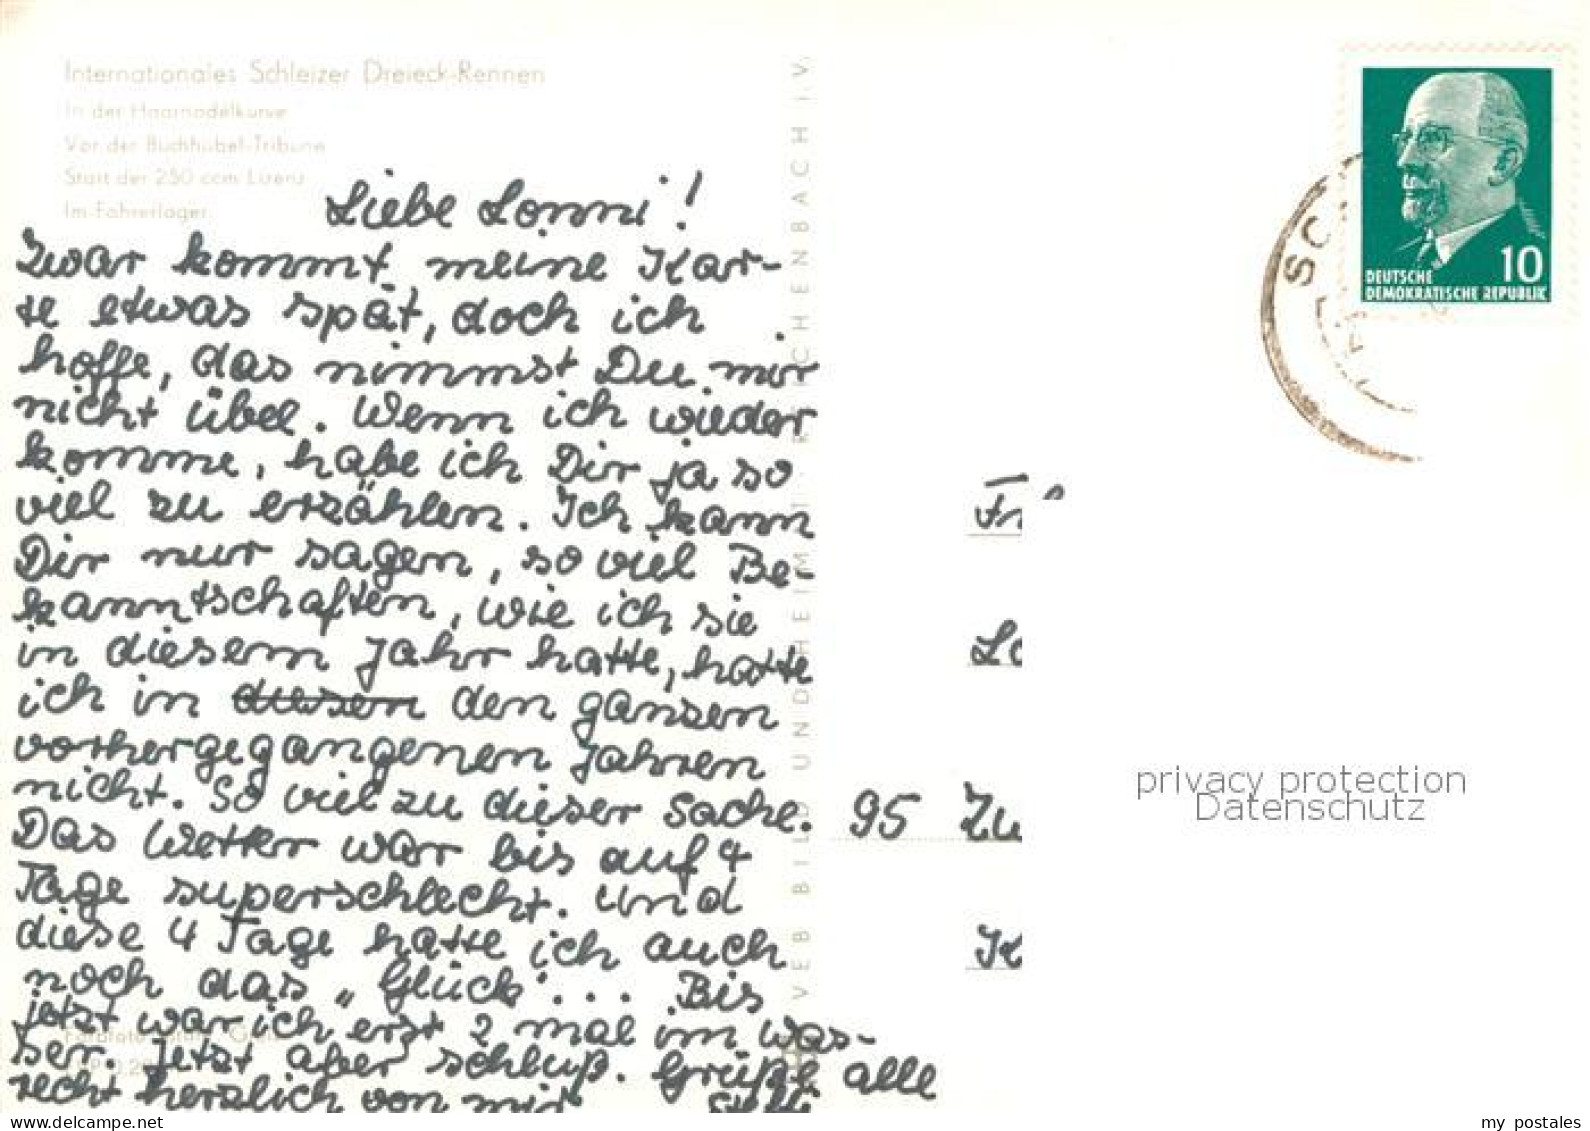 Internationales Schleizer Dreieck-Rennen
In der Haarnadelkurve
Vor der Buchhübel-Tribüne
Start der 250 ccm Lizenz
Im Fahrerlager
Liebe Lonni!
Zwar kommt meine Kar-
te etwas spät, doch ich
hoffe, das nimmst Du mir
nicht übel. Wenn ich wieder
komme, habe ich Dir ja so
viel zu erzählen. Ich kann
Dir nur sagen, so viel Be-
kanntschaften, wie ich sie
in diesem Jahr hatte, hatte
ich in diesen den ganzen
vorhergegangenen Jahren
nicht. So viel zu dieser Sache.
Das Wetter war bis auf 4
Tage superschlecht. Und
diese 4 Tage hatte ich auch
noch das „Glück“... Bis
jetzt war ich erst 2 mal im Was-
ser. Jetzt aber schluß. Grüße alle
recht herzlich von mir
VEB BILD UND HEIMAT REICHENBACH I.V.
DEUTSCHE
DEMOKRATISCHE REPUBLIK
10
95 Zu
privacy protection
Datenschutz
my postales